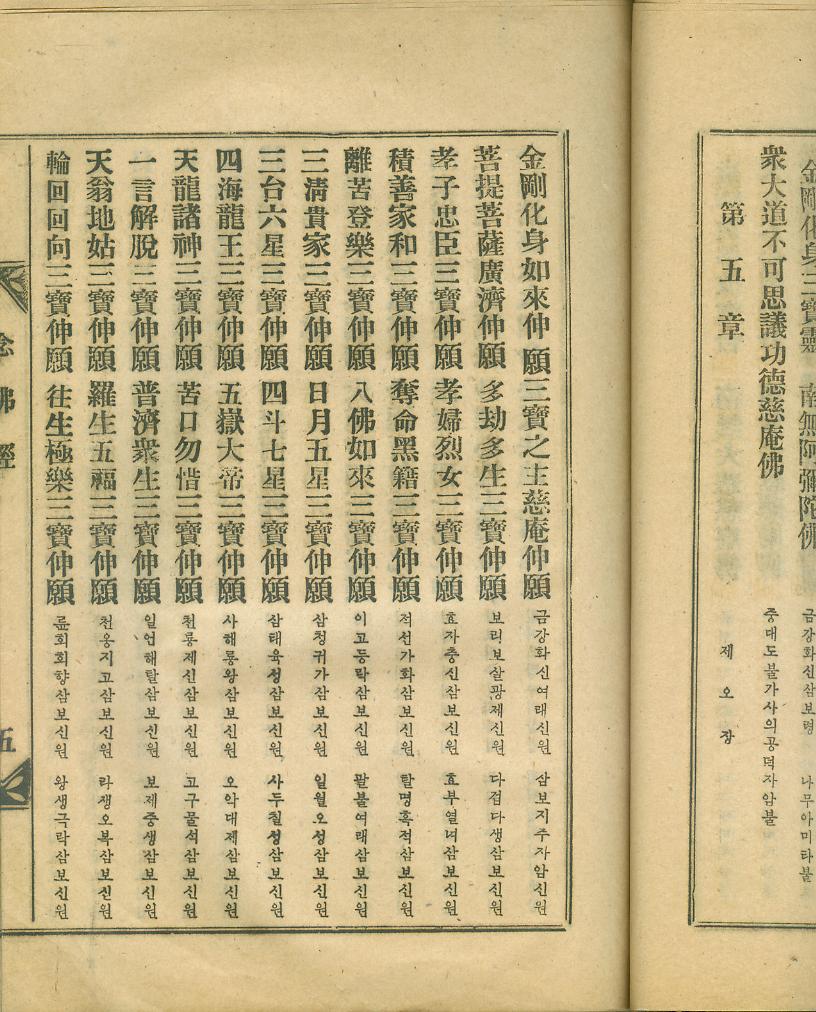 金剛化身三寶靈 南無阿彌陀佛
금강화신삼보령 나무아미타불
衆大道不可思議功德慈庵佛
중대도불가사의공덕자암불
第五章
제오장
金剛化身如來伸願 三寶之主慈庵伸願
금강화신여래신원 삼보지주자암신원
菩提菩薩廣濟伸願 多劫多生三寶伸願
보리보살광제신원 다겁다생삼보신원
孝子忠臣三寶伸願 孝婦烈女三寶伸願
효자충신삼보신원 효부열녀삼보신원
積善家和三寶伸願 奪命黑籍三寶伸願
적선가화삼보신원 탈명흑적삼보신원
離苦登樂三寶伸願 八佛如來三寶伸願
이고등락삼보신원 팔불여래삼보신원
三淸貴家三寶伸願 日月五星三寶伸願
삼청귀가삼보신원 일월오성삼보신원
三台六星三寶伸願 四斗七星三寶伸願
삼태육성삼보신원 사두칠성삼보신원
四海龍王三寶伸願 五嶽大帝三寶伸願
사해룡왕삼보신원 오악대제삼보신원
天龍諸神三寶伸願 苦口勿惜三寶伸願
천룡제신삼보신원 고구물석삼보신원
一言解脫三寶伸願 普濟衆生三寶伸願
일언해탈삼보신원 보제중생삼보신원
天翁地姑三寶伸願 羅生五福三寶伸願
천옹지고삼보신원 라생오복삼보신원
輪回回向三寶伸願 往生極樂三寶伸願
륜회회향삼보신원 왕생극락삼보신원
念佛經
五